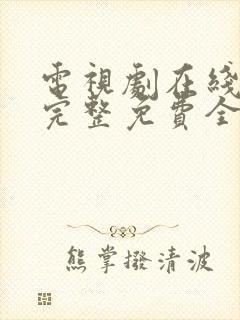 電視劇在綫
完整免費全
熊掌撥清波